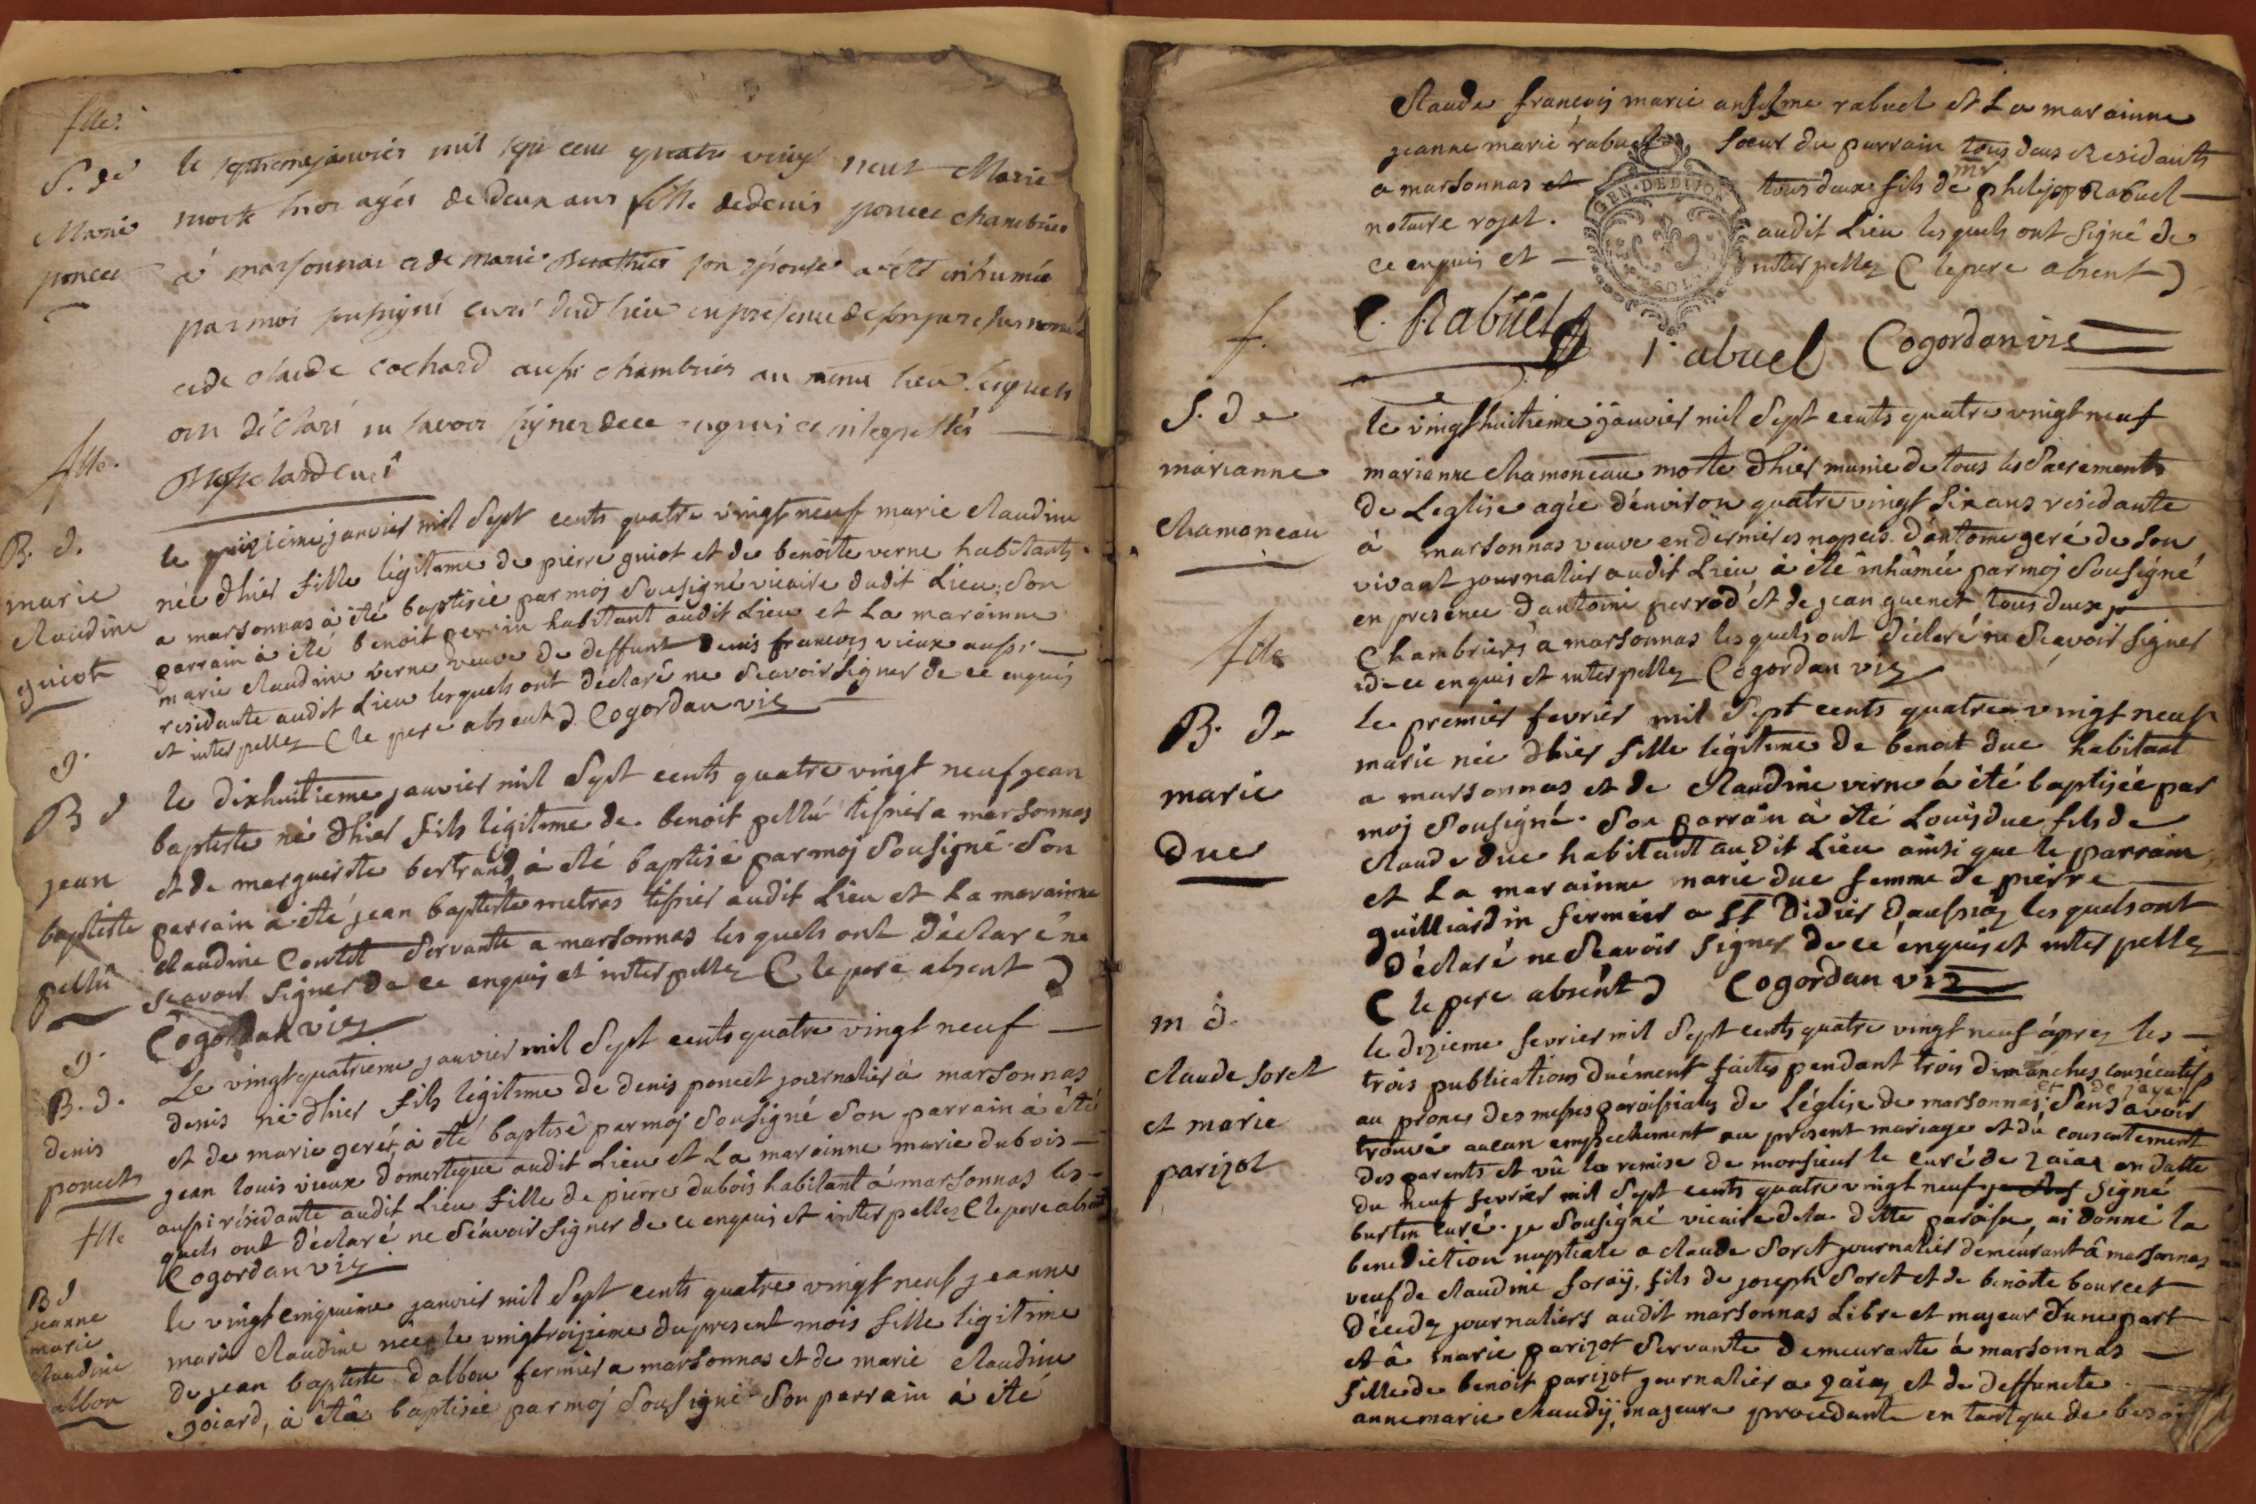 fille
S. de
Marie
poncet
le septieme janvier mil sept cent quatre vingt neuf Marie
morte hier agée de deux ans fille de denis poncet chambrier
à marsonnas et de marie son épouse a été inhumée
par moi soussigné curé dud lieu en presence de son pere susnommé
et de claude cochard aussi chambrier au meme lieu lesquels
ont déclaré ne savoir signer de ce enquis et interpellés
curé
fille.
B. d.
marie
claudine
guiot
le quizieme janvier mil Sept cents quatre vingt neuf marie claudine
née dhier fille légitime de pierre guiot et de benoite verne habitants
a marsonnas à été baptisée par moj Sousigné vicaire dudit Lieu; Son
parrain à été benoit perrin habitant audit Lieu et La marainne
marie claudine verne veuve de deffunt denis francois vieux aussi
residante audit Lieu lesquels ont déclaré ne Scavoir Signer de ce enquis
et interpellez (le pere absent) Cogordan vic
g.
B d
jean
baptiste
pellû
le dixhuitieme janvier mil Sept cents quatre vingt neuf jean
baptiste né dhier fils légitime de benoit pellû tissier a marsonnas
et de marguerite bertrand, à été baptisé par moj Sousigné Son
parrain à été jean baptiste metras tissier audit Lieu et La marainne
claudine Contet Servante a marsonnas les quels ont déclaré ne
scavoir Signer de ce enquis et interpellez (le pere absent)
Cogordan vic
g.
B. d.
denis
poncet
Le vingt quatrieme janvier mil Sept cents quatre vingt neuf
denis né dhier fils légitime de denis poncet journalier à marsonnas
et de marie geré, à été baptisé par moj Sousigné Son parrain à été
jean louis vieux domestique audit Lieu et La marainne marie dubois
aussi résidante audit Lieu fille de pierre dubois habitant à marsonnas les
quels ont déclaré ne Scavoir Signer de ce enquis et interpellez (le pere absent
Cogordan vic
fille
B d
jeanne
marie
claudine
albon
le vingt cinquieme janvier mil Sept cents quatre vingt neuf jeanne
marie claudine née le vingtroizieme du present mois fille légitime
de jean baptiste dalbon fermier a marsonnas et de marie claudine
goiard, à été baptisée par moj Sousigné Son parrain à été
Claude françois marie anselme rabuel et La marainne
jeanne marie rabuel Soeur du parrain tous deux Residants
a marsonnas et tous deux fils de mr philipp Rabuel
notaire rojal. audit Lieu lesquels ont Signé de
ce enquis et interpellez (le pere absent)
GEN. DE DIJON
C. Rabüel rabuel Cogordan vic
f.
S. de
marianne
chamoneau
le vingthuitieme janvier mil Sept cents quatre vingt neuf
marianne chamoneau morte dhier munie de tous les Sacrements
de Leglise agée d'environ quatre vingt Six ans residante
à marsonnas veuve en dernieres nopces d'antoine geré de Son
vivant journalier audit Lieu à été inhûmée par moj Sousigné
en presence d'antoine perrod et de jean guenet tous deux
Chambriers a marsonnas les quels ont déclaré ne Scavoir Signer
de ce enquis et interpellez Cogordan vic
fille
B. de
marie
duc
le premier fevrier mil Sept cents quatre vingt neuf
marie née dhier fille légitime de benoit duc habitant
a marsonnas et de claudine verne à été baptisée par
moj Sousigné. Son parrain à été Louis duc fils de
claude duc habitant audit Lieu ainsi que le parrain
et La marainne marie duc femme de pierre
guilliardin fermier a St Didier daussiaz les quels ont
déclaré ne Scavoir Signer de ce enquis et interpellez
(le pere absent) Cogordan vic
m d.
claude soret
et marie
parizot
le dizieme fevrier mil Sept cents quatre vingt neuf après les
trois publications duément faites pendant trois dimanches consécutifs
au prone des messes paroissiales de L'église de marsonnas; et de jayat Sans avoir
trouvé aucun empechement au present mariage et du consentement
des parents et vû la remise de monsieur le curé de jaiat en datte
du neuf fevrier mil Sept cents quatre vingt neuf Signé
burtin curé. je Sousigné vicaire de la ditte paroisse, ai donné la
benediction nuptiale a claude Soret journalier demeurant â marsonnas
veuf de claudine foraÿ, fils de joseph Soret et de benoite bourcet
décedez journaliers audit marsonnas Libre et majeur d'une part
et â marie parizot Servante demeurante à marsonnas
fille de benoit parizot journalier a jaiat et de deffuncte
anne marie chaudÿ, majeure procedante en tant que de besoin